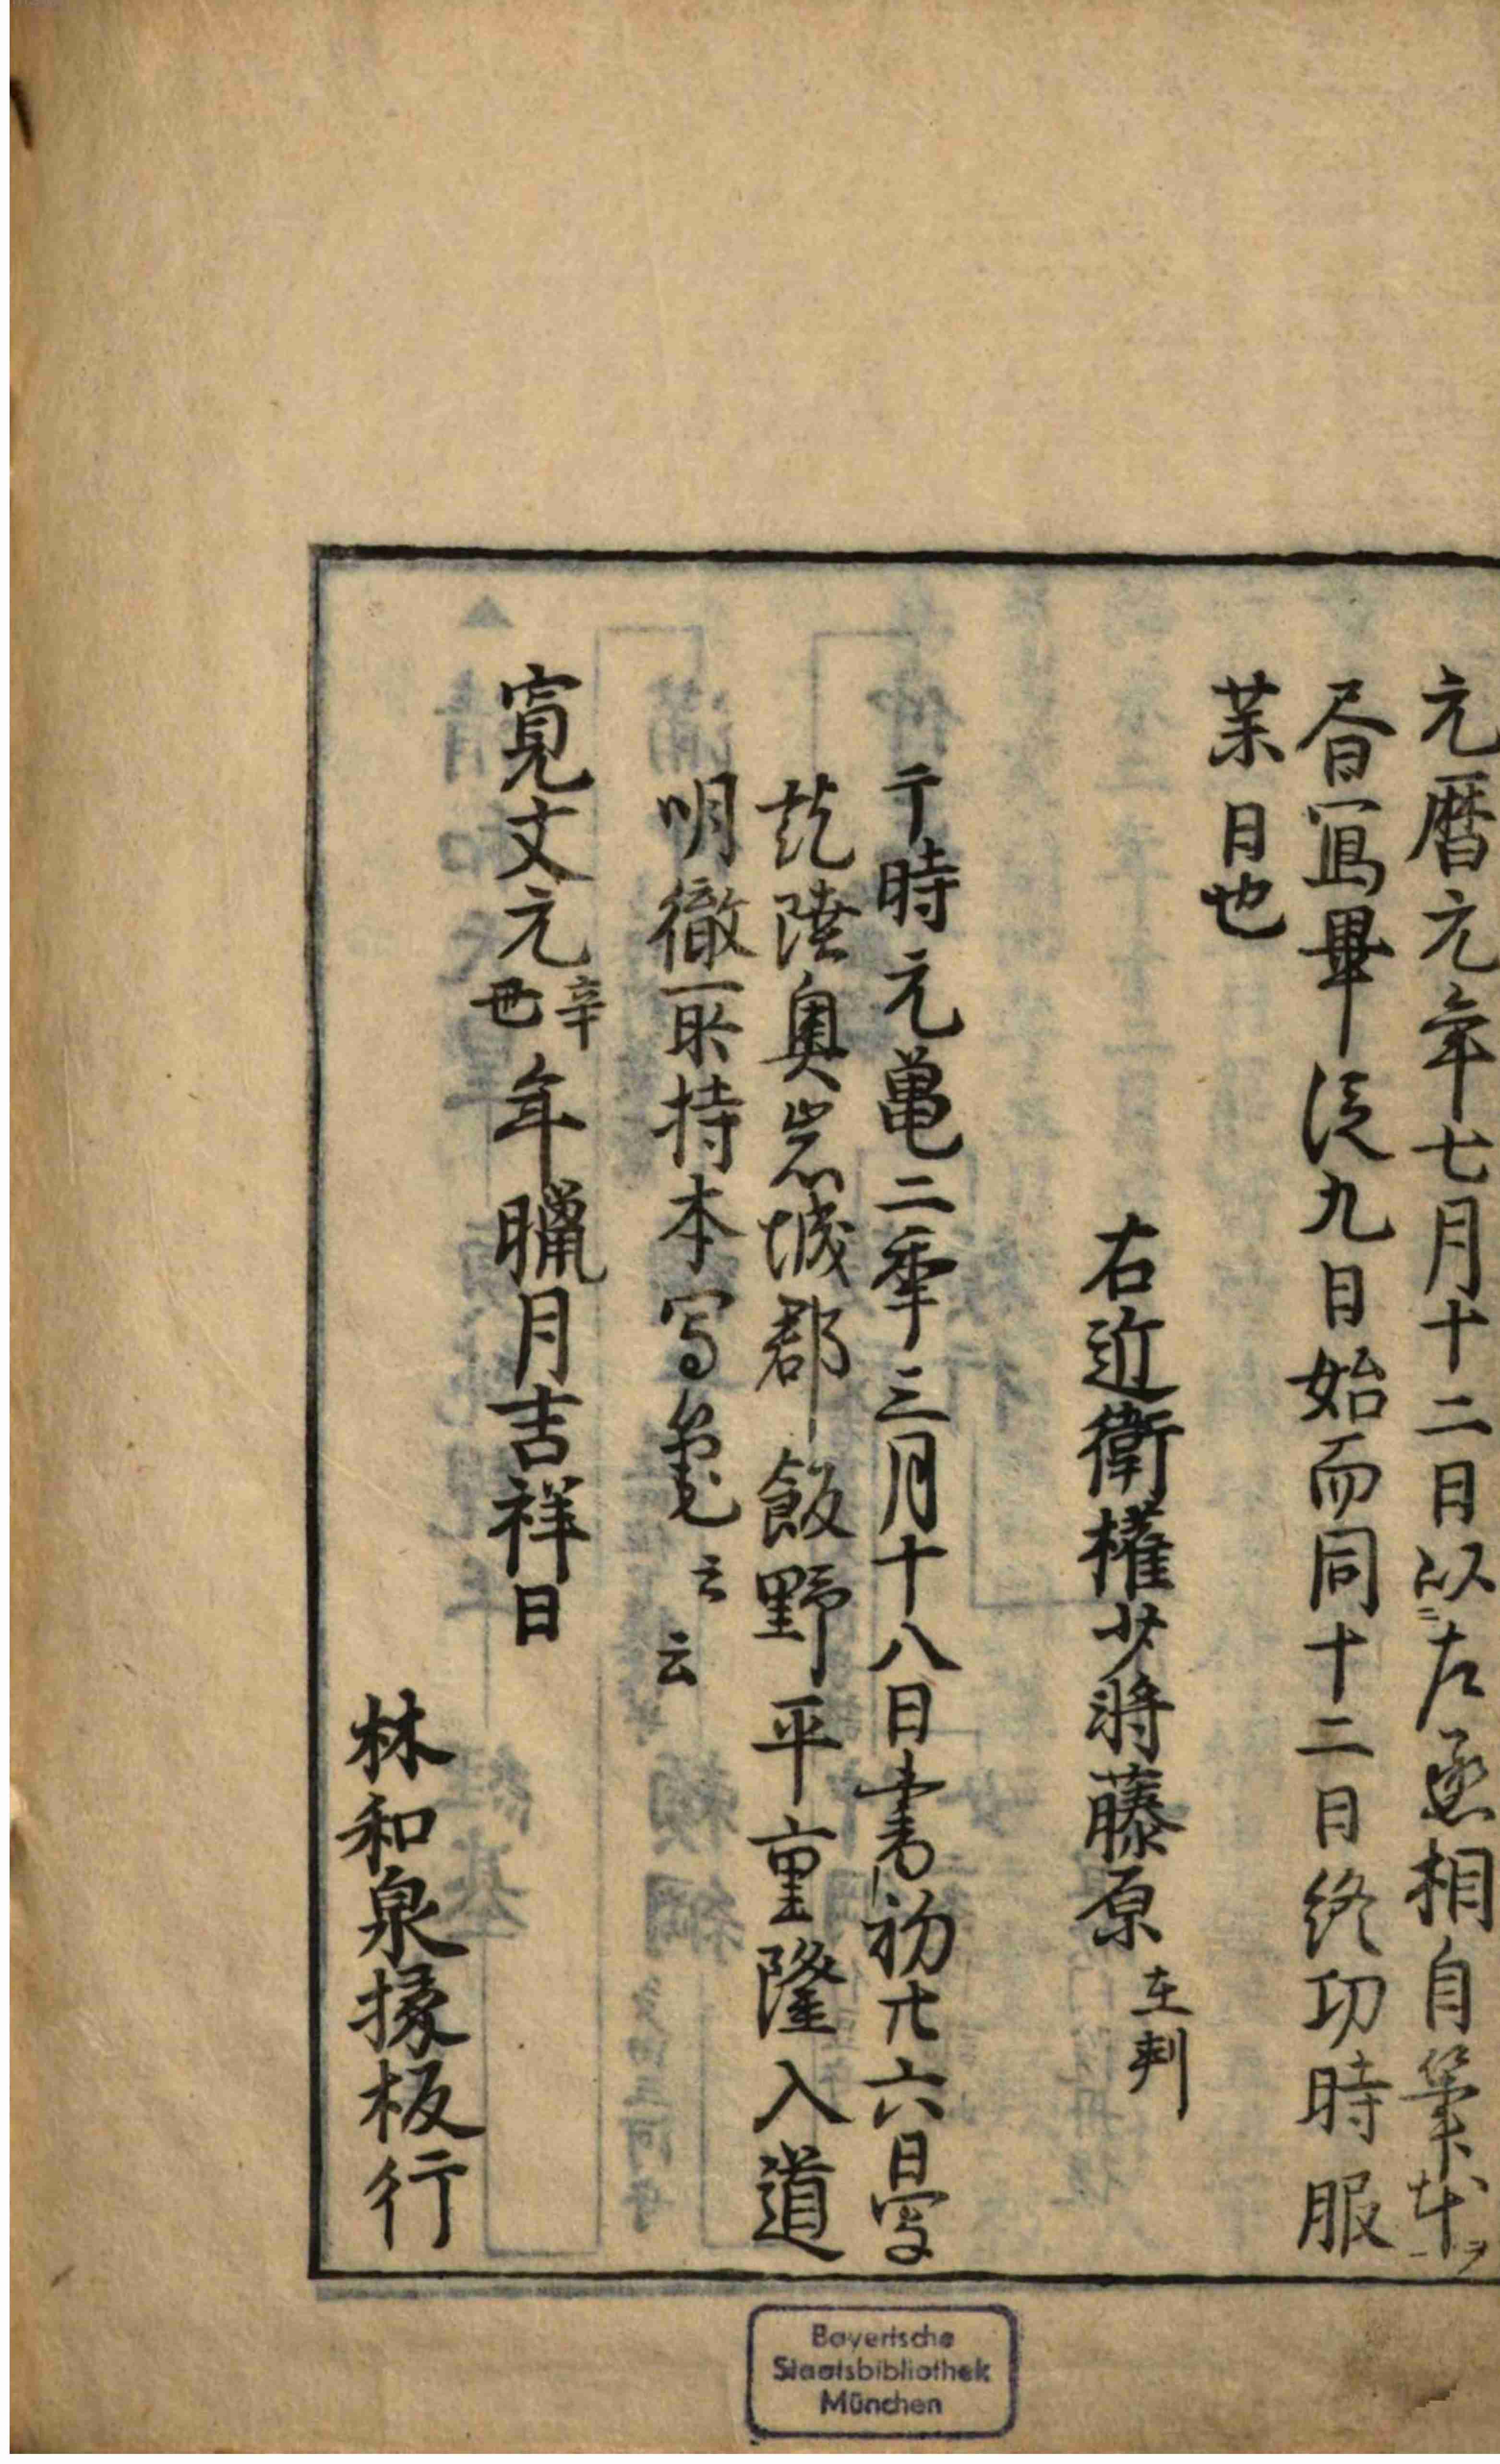 元暦元年七月十二日以左丞相自筆本ヲ
昏寫畢従九日始而同十二日終功時服
業日也
右近衛権少将藤原 在判
于時元亀二季三月十八日書初廿六日寫
訖陸奥岩城郡飯野平重隆入道
明徹所持本写
云云
寛文元辛丑年臘月吉祥日
林和泉掾板行
Bayerische
Staatsbibliothek
München